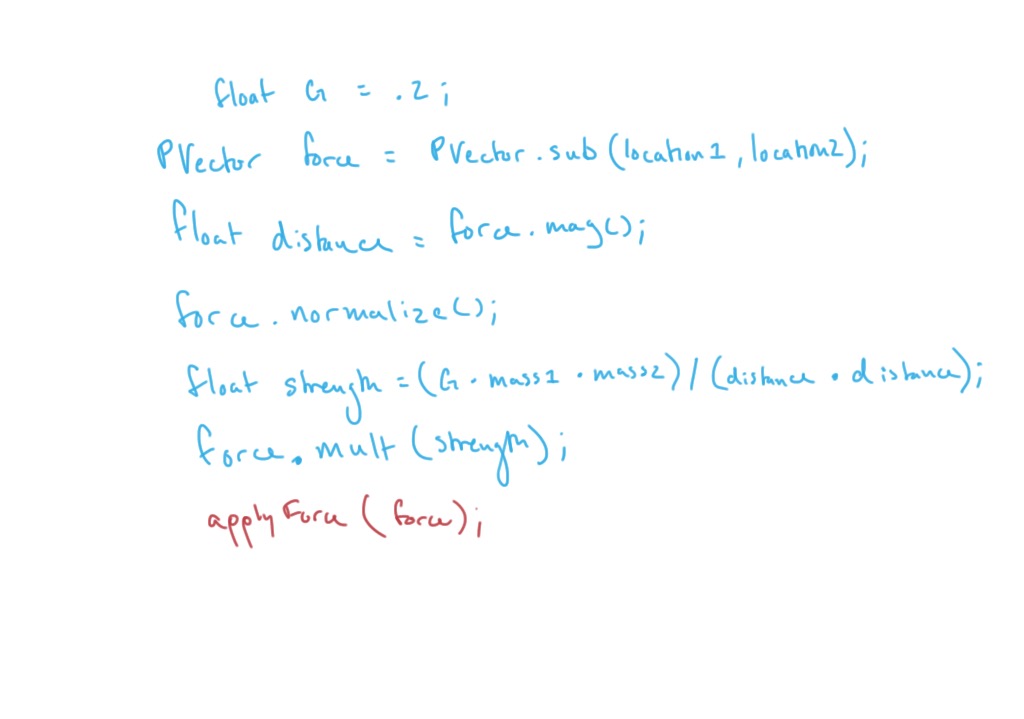 float G = .2;
PVector force = PVector.sub(location1, location2);
float distance = force.mag();
force.normalize();
float strength = (G · mass1 · mass2) / (distance · distance);
force.mult(strength);
applyForce(force);